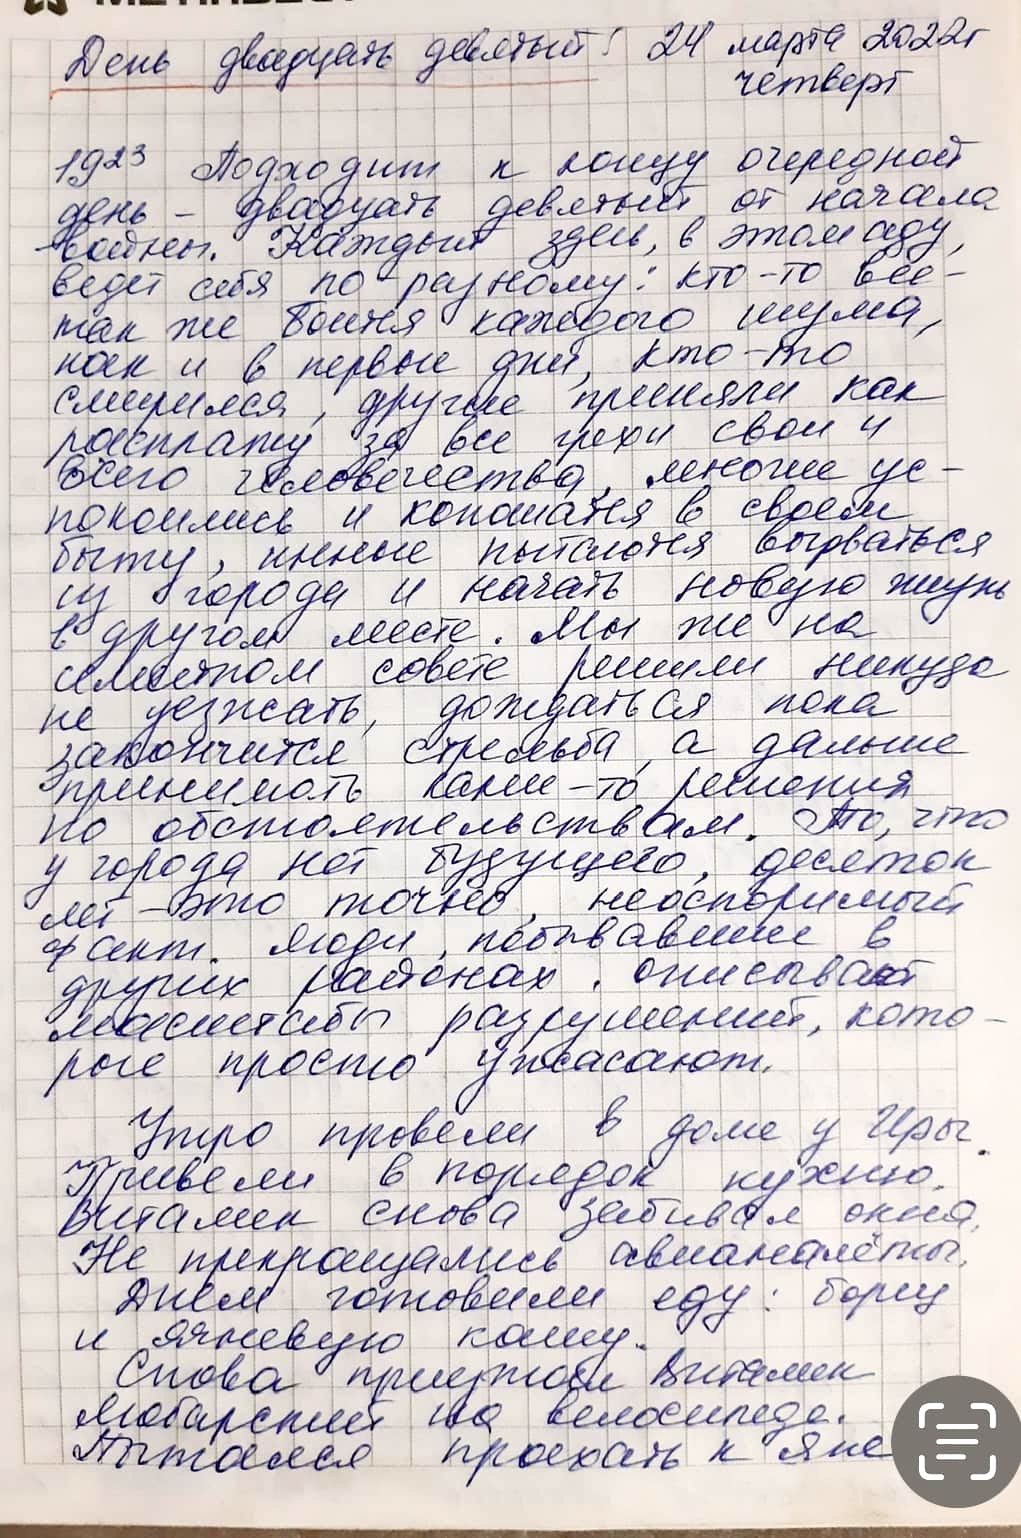 МЕТИНВЕСТ
День двадцать девятый! 24 марта 2022г
четверг
19²³ Подходит к концу очередной
день – двадцать девятый от начала
войны. Каждый здесь, в этом аду,
ведет себя по разному: кто-то все-
так же боится каждого шума,
как и в первые дни, кто-то
смирился, другие приняли как
расплату за все грехи свои и
всего человечества, многие ус-
покоились и копошатся в своем
быту, инные пытаются вырваться
из города и начать новую жизнь
в другом месте. Мы же на
семейном совете решили никуда
не уезжать, дождаться пока
закончится стрельба, а дальше
принимать какие-то решения
по обстоятельствам. То, что
у города нет будущего, десяток
лет – это точно, неоспоримый
факт. Люди, побывавшие в
других районах, описывают
масштабы разрушений, кото-
рые просто ужасают.
Утро провели в доме у Иры.
Привели в порядок кухню.
Виталик снова забивал окна.
Не прекращались авианалёты.
Днем готовили еду: борщ
и ячневую кашу.
Снова приезжал Виталик
на велосипеде.
Пытался проехать к Яне